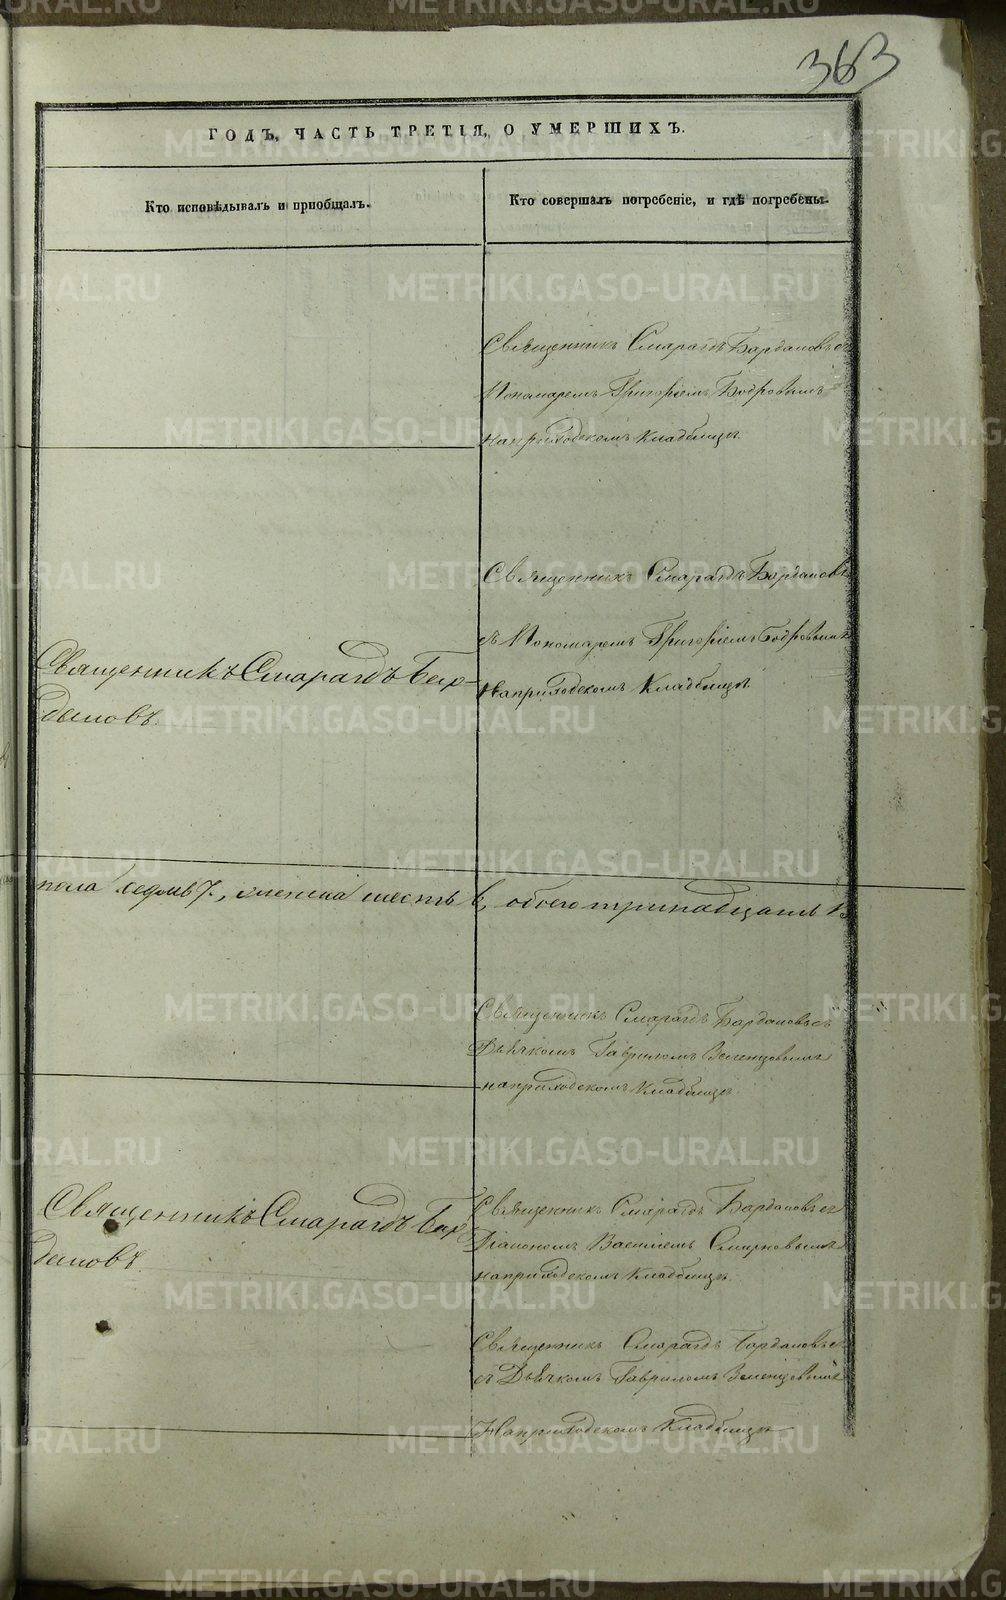 363
ГОДЪ, ЧАСТЬ ТРЕТІЯ, О УМЕРШИХЪ.
Кто исповѣдывалъ и пріобщалъ.
Кто совершалъ погребеніе, и гдѣ погребены.
Священникъ Смарагдъ Бардановъ съ
Пономаремъ Григоріемъ Бодровымъ
на приходскомъ кладбищѣ.
Священникъ Смарагдъ Бардановъ
съ Пономаремъ Григоріемъ Бодровымъ
На приходскомъ Кладбищѣ.
Священникъ Смарагдъ
пола седмь 7, женска шесть 6, обоего тринадцать 13
Священникъ Смарагдъ Бардановъ съ
Дьячкомъ Гавриломъ Зеленцовымъ
на приходскомъ Кладбищѣ.
Священникъ Смарагдъ
Священникъ Смарагдъ Бардановъ съ
Діакономъ Василіемъ Смирновымъ
на приходскомъ Кладбищѣ.
Священникъ Смарагдъ Бардановъ
съ Дьячкомъ Гавриломъ Зеленцовымъ
На приходскомъ Кладбищѣ
METRIKI.GASO-URAL.RU